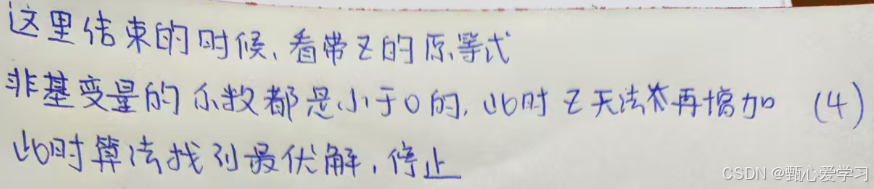 这里结束的时候,看带z的原等式
非基变量的系数都是小于0的,此时z无法再增加 (4)
此时算法找到最优解,停止
CSDN @甄心爱学习